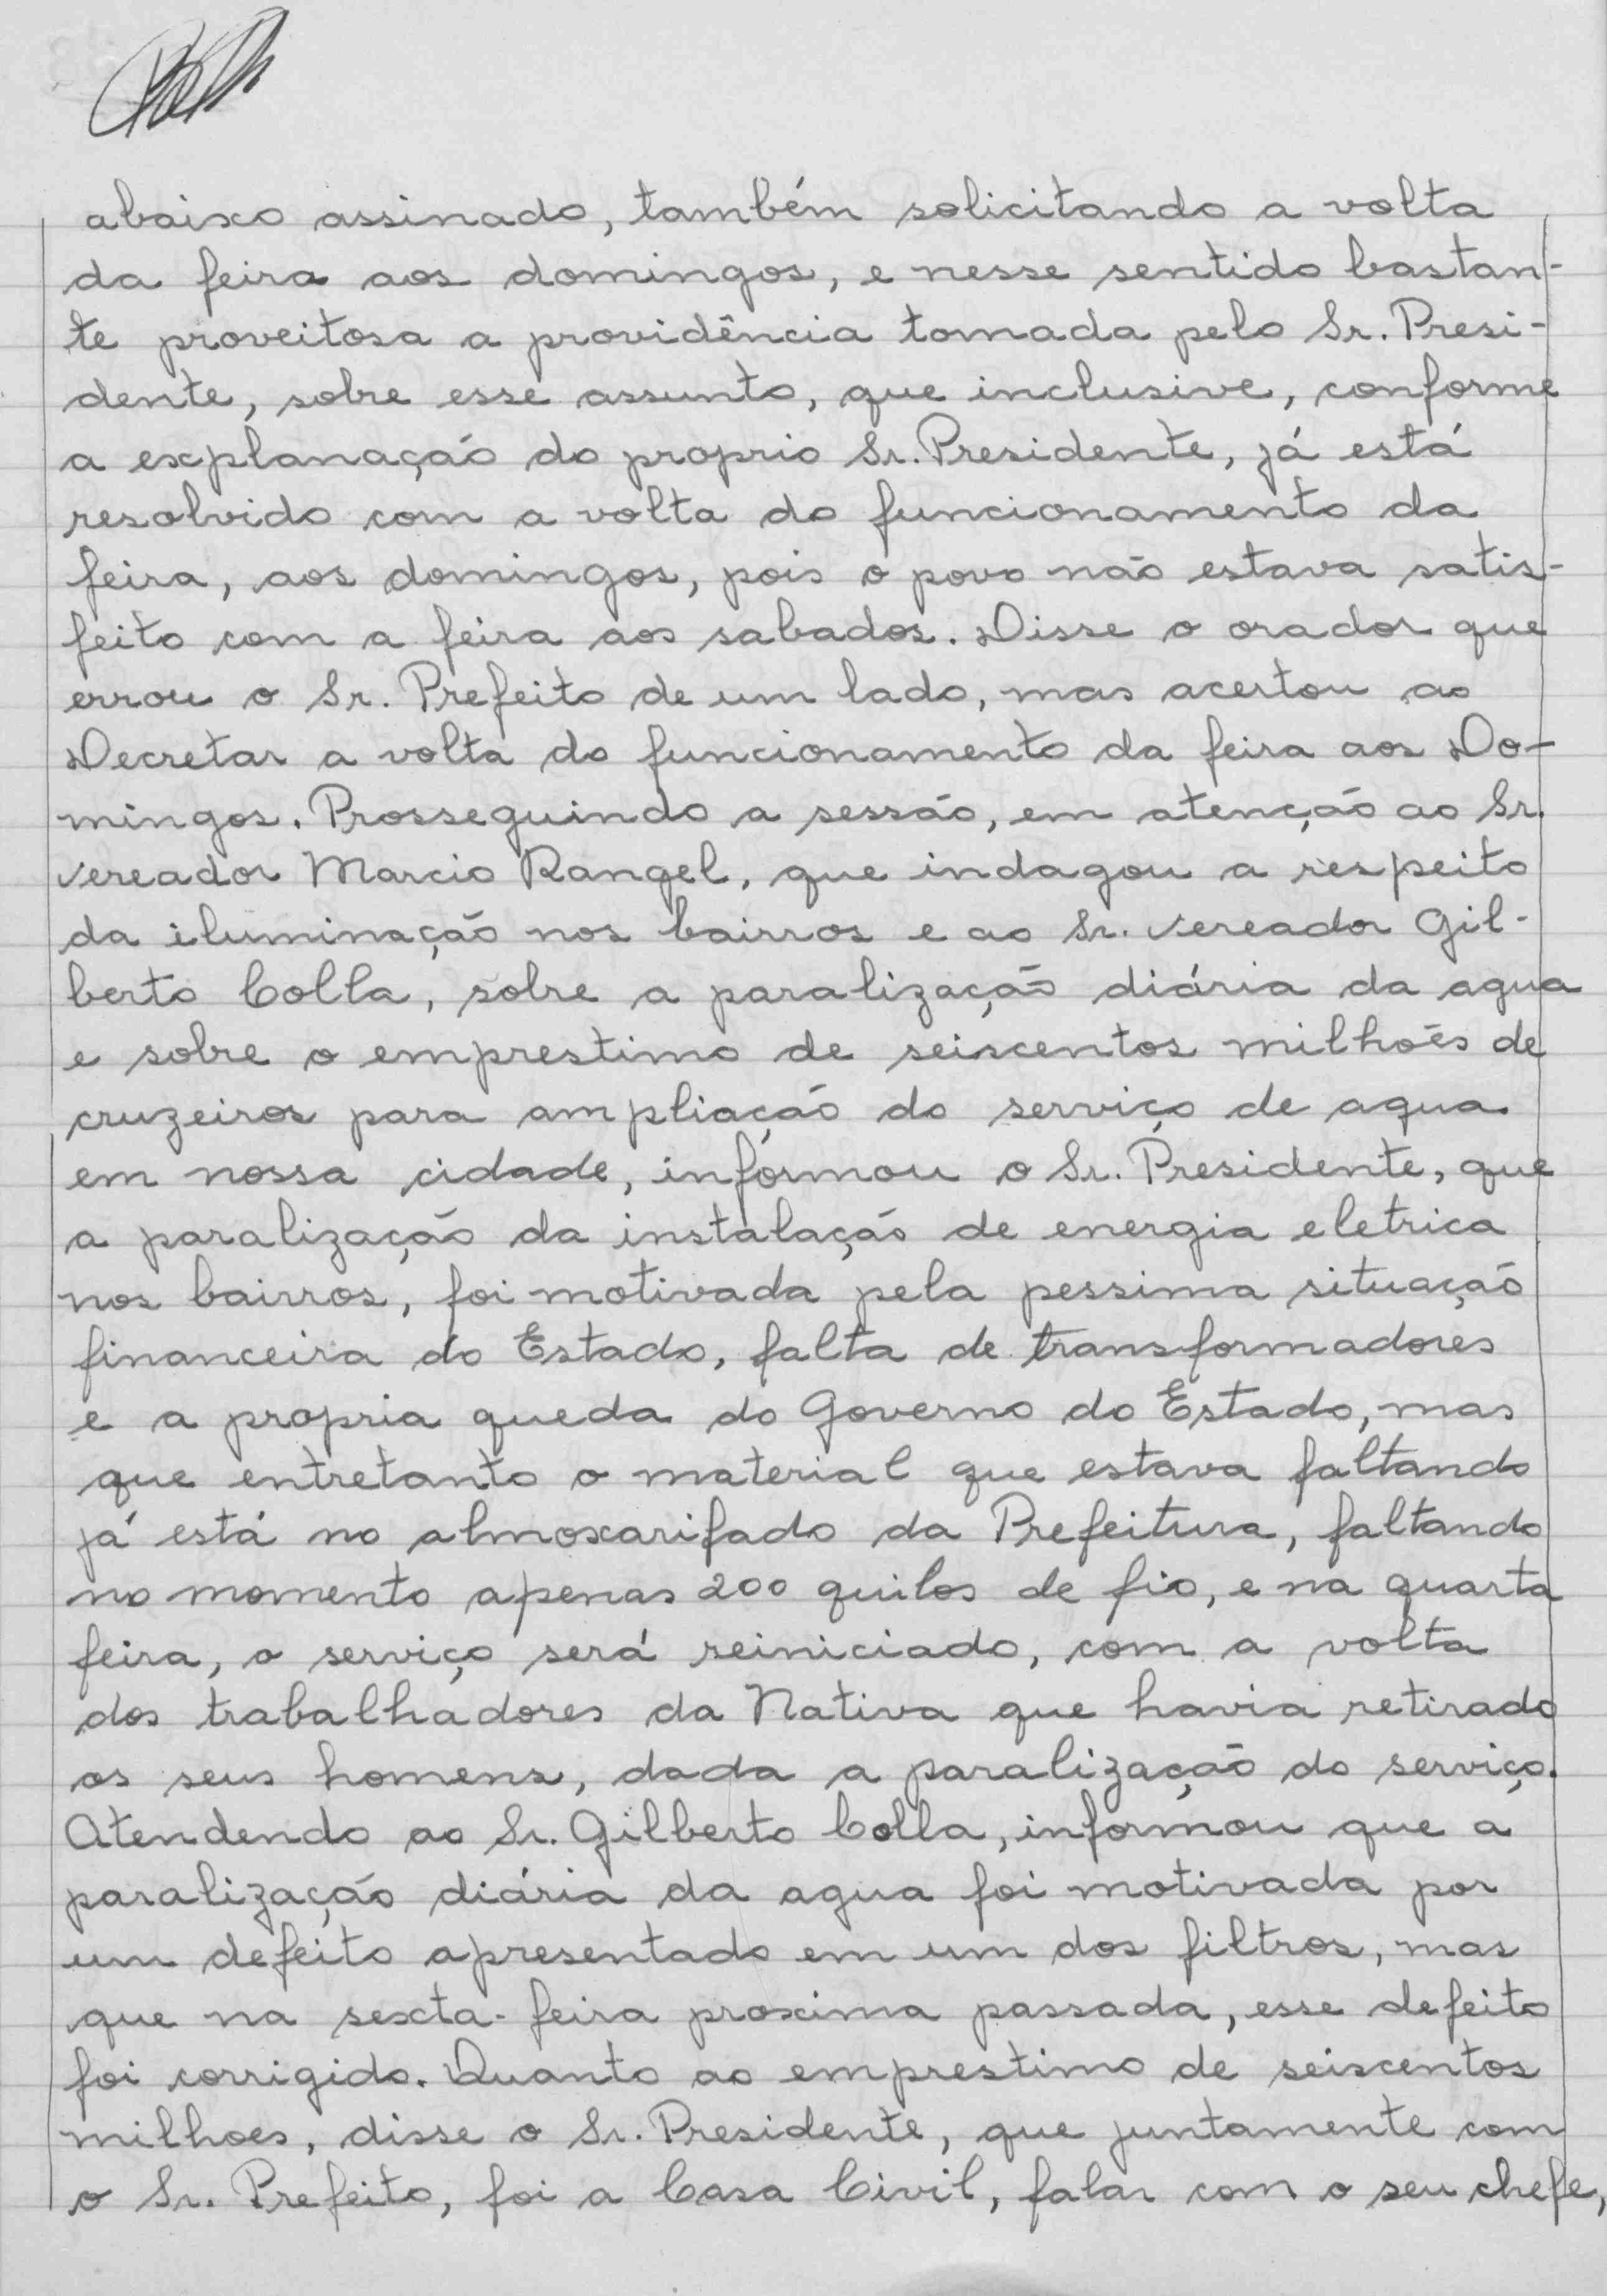 abaixo assinado, também solicitando a volta
da feira aos domingos, e nesse sentido bastan-
te proveitosa a providência tomada pelo Sr. Presi-
dente, sobre esse assunto, que inclusive, conforme
a explanação do proprio Sr. Presidente, já está
resolvido com a volta do funcionamento da
feira, aos domingos, pois o povo não estava satis-
feito com a feira aos sabados. Disse o orador que
errou o Sr. Prefeito de um lado, mas acertou ao
Decretar a volta do funcionamento da feira aos Do-
mingos. Prosseguindo a sessão, em atenção ao Sr.
vereador Marcio Rangel, que indagou a respeito
da iluminação nos bairros e ao Sr. vereador Gil-
berto Colla, sobre a paralização diária da agua
e sobre o emprestimo de seiscentos milhões de
cruzeiros para ampliação do serviço de agua
em nossa cidade, informou o Sr. Presidente, que
a paralização da instalação de energia eletrica
nos bairros, foi motivada pela pessima situação
financeira do Estado, falta de transformadores
e a propria queda do Governo do Estado, mas
que entretanto o material que estava faltando
já está no almoxarifado da Prefeitura, faltando
no momento apenas 200 quilos de fio, e na quarta
feira, o serviço será reiniciado, com a volta
dos trabalhadores da Nativa que havia retirado
os seus homens, dada a paralização do serviço.
Atendendo ao Sr. Gilberto Colla, informou que a
paralização diária da agua foi motivada por
um defeito apresentado em um dos filtros, mas
que na sexta-feira proxima passada, esse defeito
foi corrigido. Quanto ao emprestimo de seiscentos
milhoes, disse o Sr. Presidente, que juntamente com
o Sr. Prefeito, foi a Casa Civil, falar com o seu chefe,